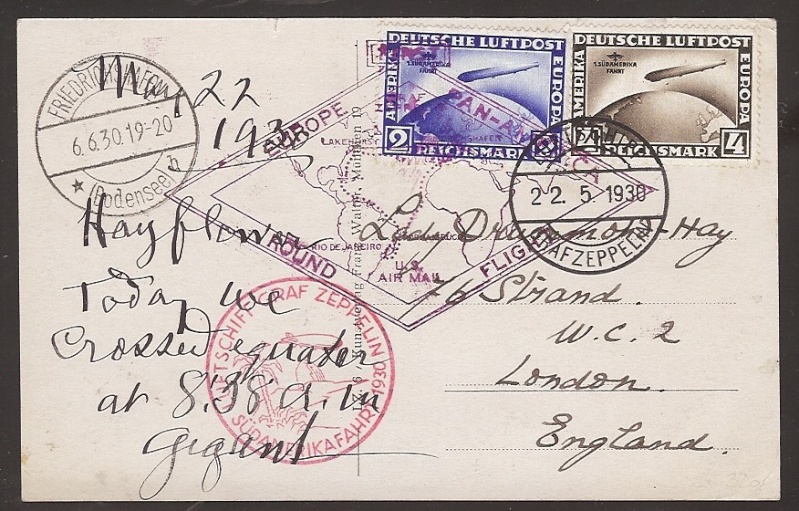 DEUTSCHE LUFTPOST
AMERIKA
EUROPA
1. SÜDAMERIKA
FAHRT
2 REICHSMARK
DEUTSCHE LUFTPOST
AMERIKA
EUROPA
1. SÜDAMERIKA
FAHRT
REICHSMARK 4
FRIEDRICHSHAFEN
6.6.30.19-20
(Bodensee) b
May 22
193
FIRST
EUROPE
PAN-AMERICA
ROUND
FLIGHT
LAKEHURST
RIO DE JANEIRO
U.S.
AIR MAIL
22.5.1930
GRAF ZEPPELIN
LUFTSCHIFF GRAF ZEPPELIN
SÜDAMERIKAFAHRT 1930
Hayflower
Today we
crossed equator
at 8.38 a.m
Gigant
Lady Drummond-Hay
76 Strand.
W.C.2
London.
England.